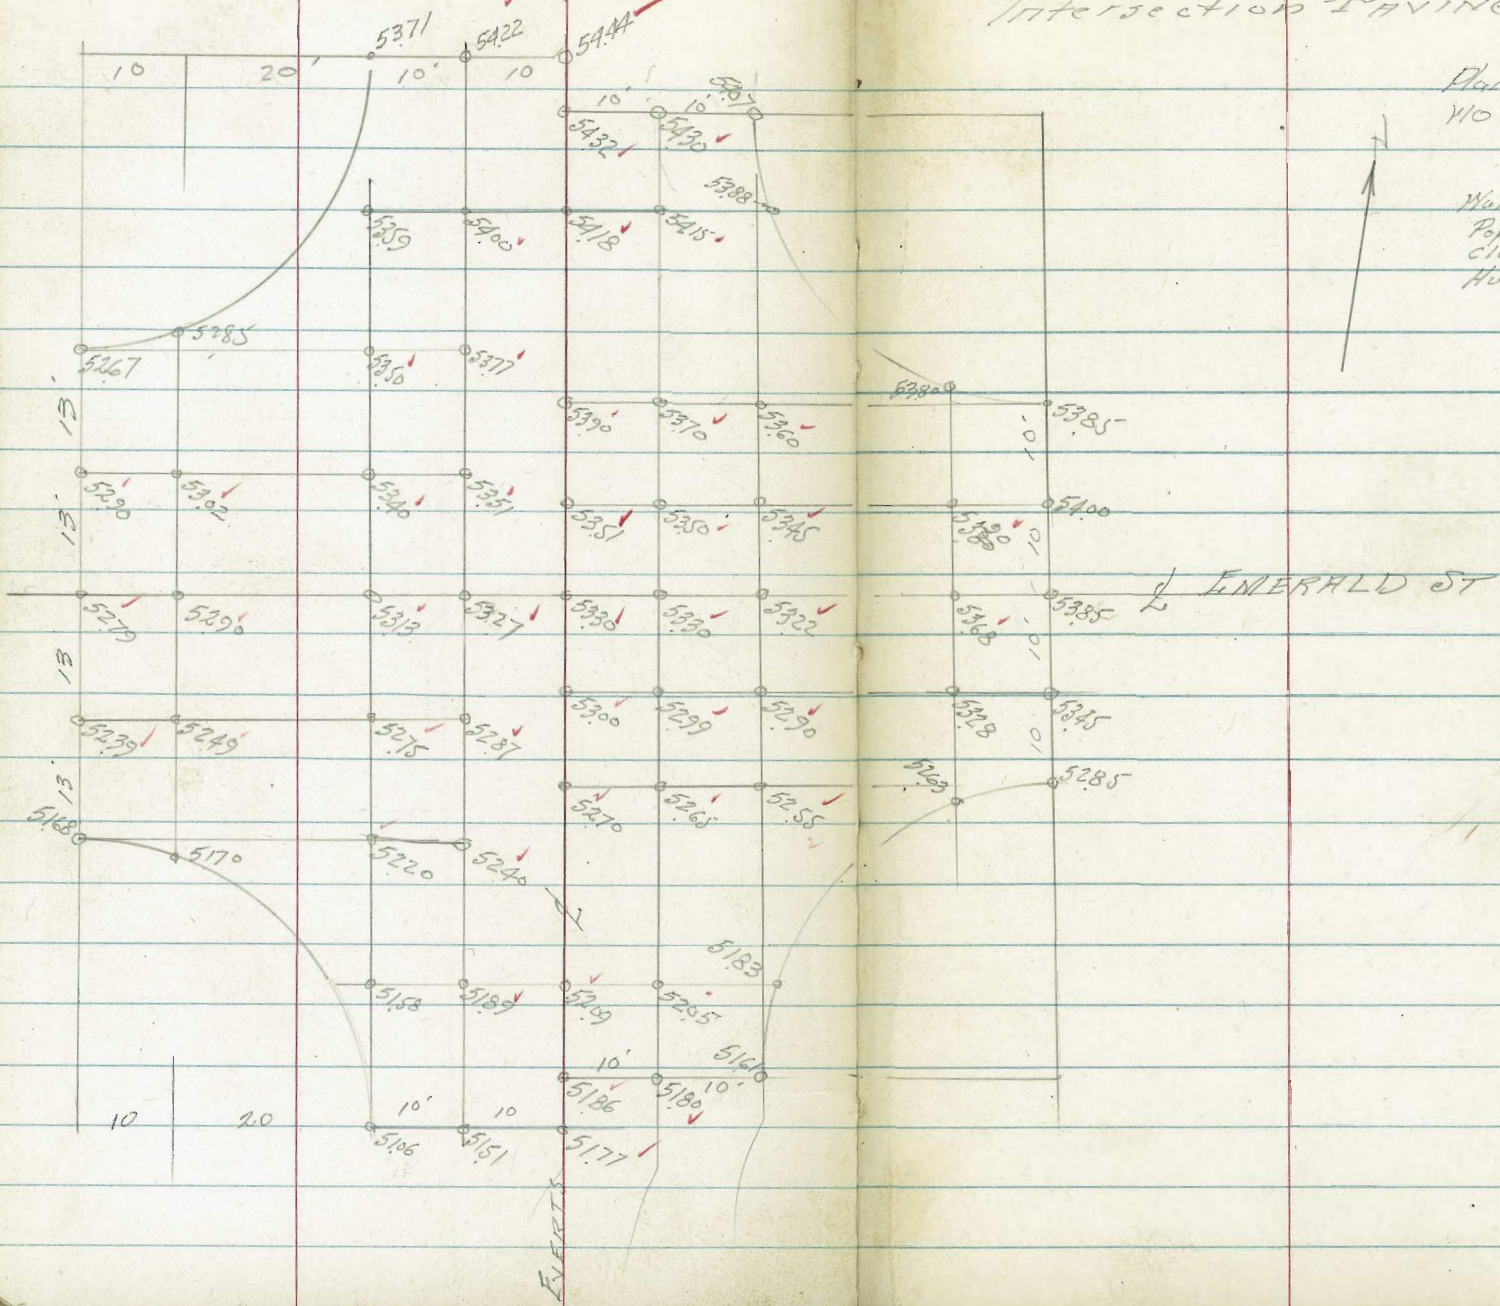 Intersection PAVING
5371 5422 5444
10 20' 10' 10
10' 10' 5407
5432 5430
WO
5388
5359 5400 5418 5415
5285
5267 5350 5377
5380
13' 5390 5370 5360 5385
10'
5290 5302 5340 5351
13' 5351 5350 5345 5400
10
℄ EMERALD ST
5279 5290 5313 5327 5330 5330 5322 5368 5385
13 10'
5239 5249 5275 5287 5300 5299 5290 5328 5345
10
13' 5263 5285
5270 5265 5255
5168 5170 5220 5240
℄
5183
5158 5189 5209 5205
10' 5161
5186 5180 10'
10 20 10' 10
5106 5151 5177
EVERTS